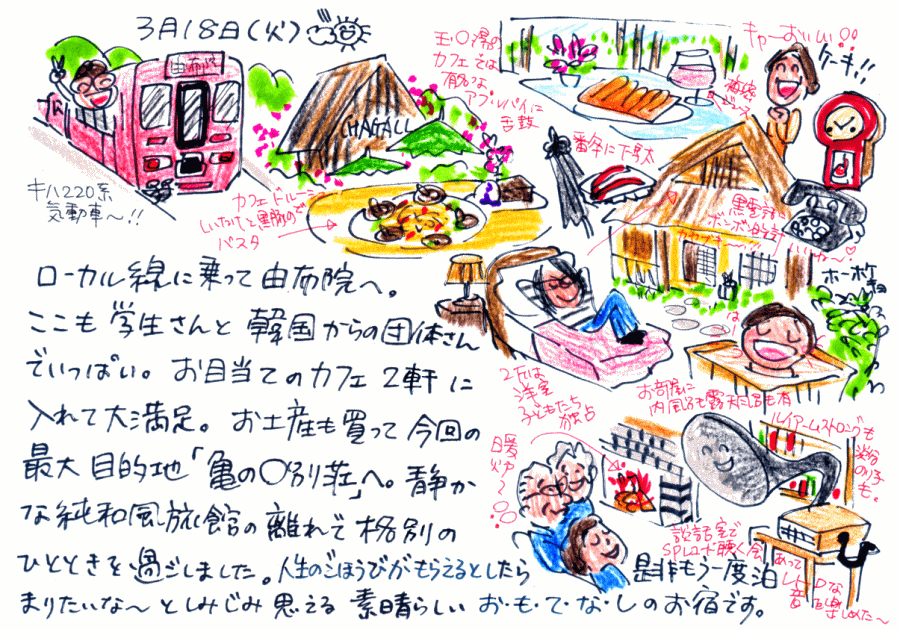 3月18日(火)
由布院
キハ220系
気動車〜!!
CHAGALL
玉の湯の
カフェでは
有名な
アップルパイに
舌鼓
キャーおいしい!!
ケーキ!!
番傘に下駄
カフェ ドルーラ
しいたけと黒豚の
パスタ
黒電話に
ボンボン時計
ホーホケキョ
2Fは
洋室
子どもたち
お部屋に
内風呂も露天風呂も有
ルイアームストロングも
暖炉〜
談話室で
SPレコード聴く会
あって
レトロな
音を楽しみ
ましためた〜
ローカル線に乗って由布院へ。
ここも学生さんと韓国からの団体さん
でいっぱい。お目当てのカフェ2軒に
入れて大満足。お土産も買って今回の
最大目的地「亀の〇別荘」へ。静か
な純和風旅館の離れで格別の
ひとときを過ごしました。人生のごほうびがもらえるとしたら是非もう一度泊
まりたいな〜としみじみ思える素晴らしいお・も・て・な・しのお宿です。